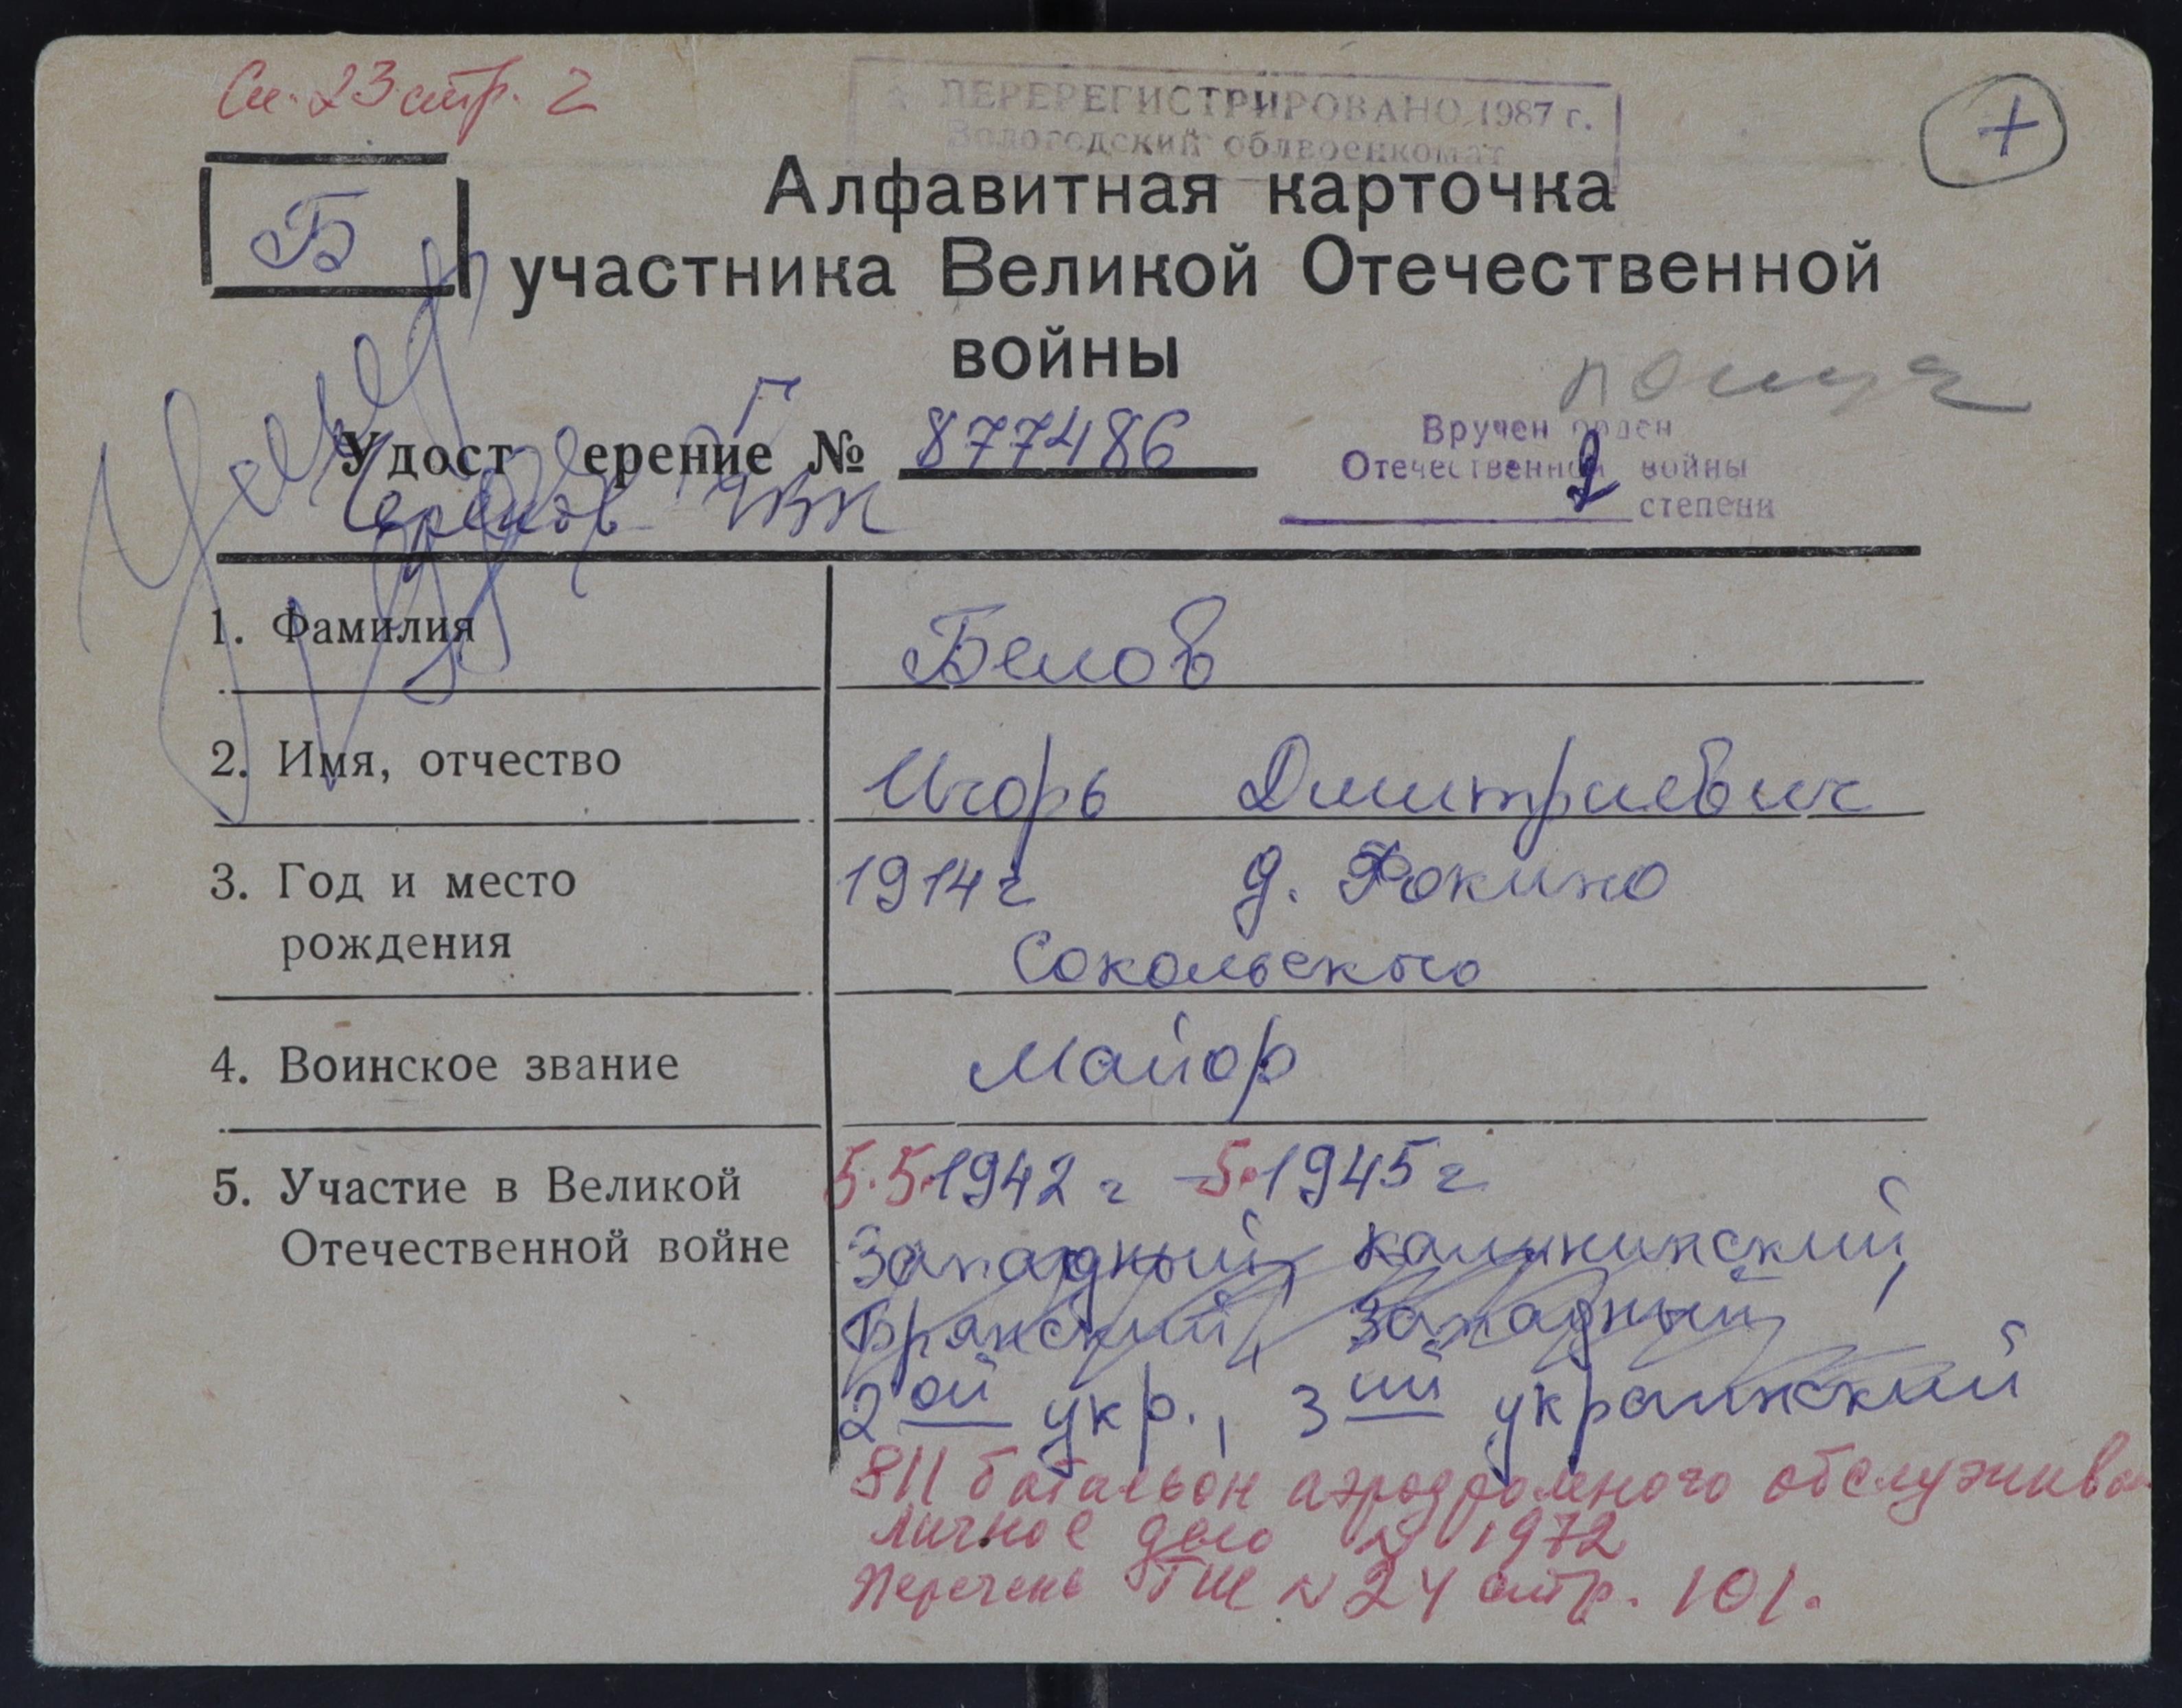 См. 23 стр. 2
ПЕРЕРЕГИСТРИРОВАНО 1987 г.
Вологодский облвоенкомат
+
Б
Алфавитная карточка
участника Великой Отечественной
войны
Г
Удост ерение № 877486
Вручен орден
Отечественной войны
2 степени
Черепов ГВК
1. Фамилия Белов
2. Имя, отчество Игорь Дмитриевич
3. Год и место 1914 г д. Фокино
рождения Сокольского
4. Воинское звание Майор
5. Участие в Великой 5.5.1942 г - 5.1945 г
Отечественной войне Западный, калининский,
Брянский, Западный
2ой укр., 3ий украинский
811 батальон аэродромного обслужива
личное дело N 1972
Перечень ГШ N 24 стр. 101.